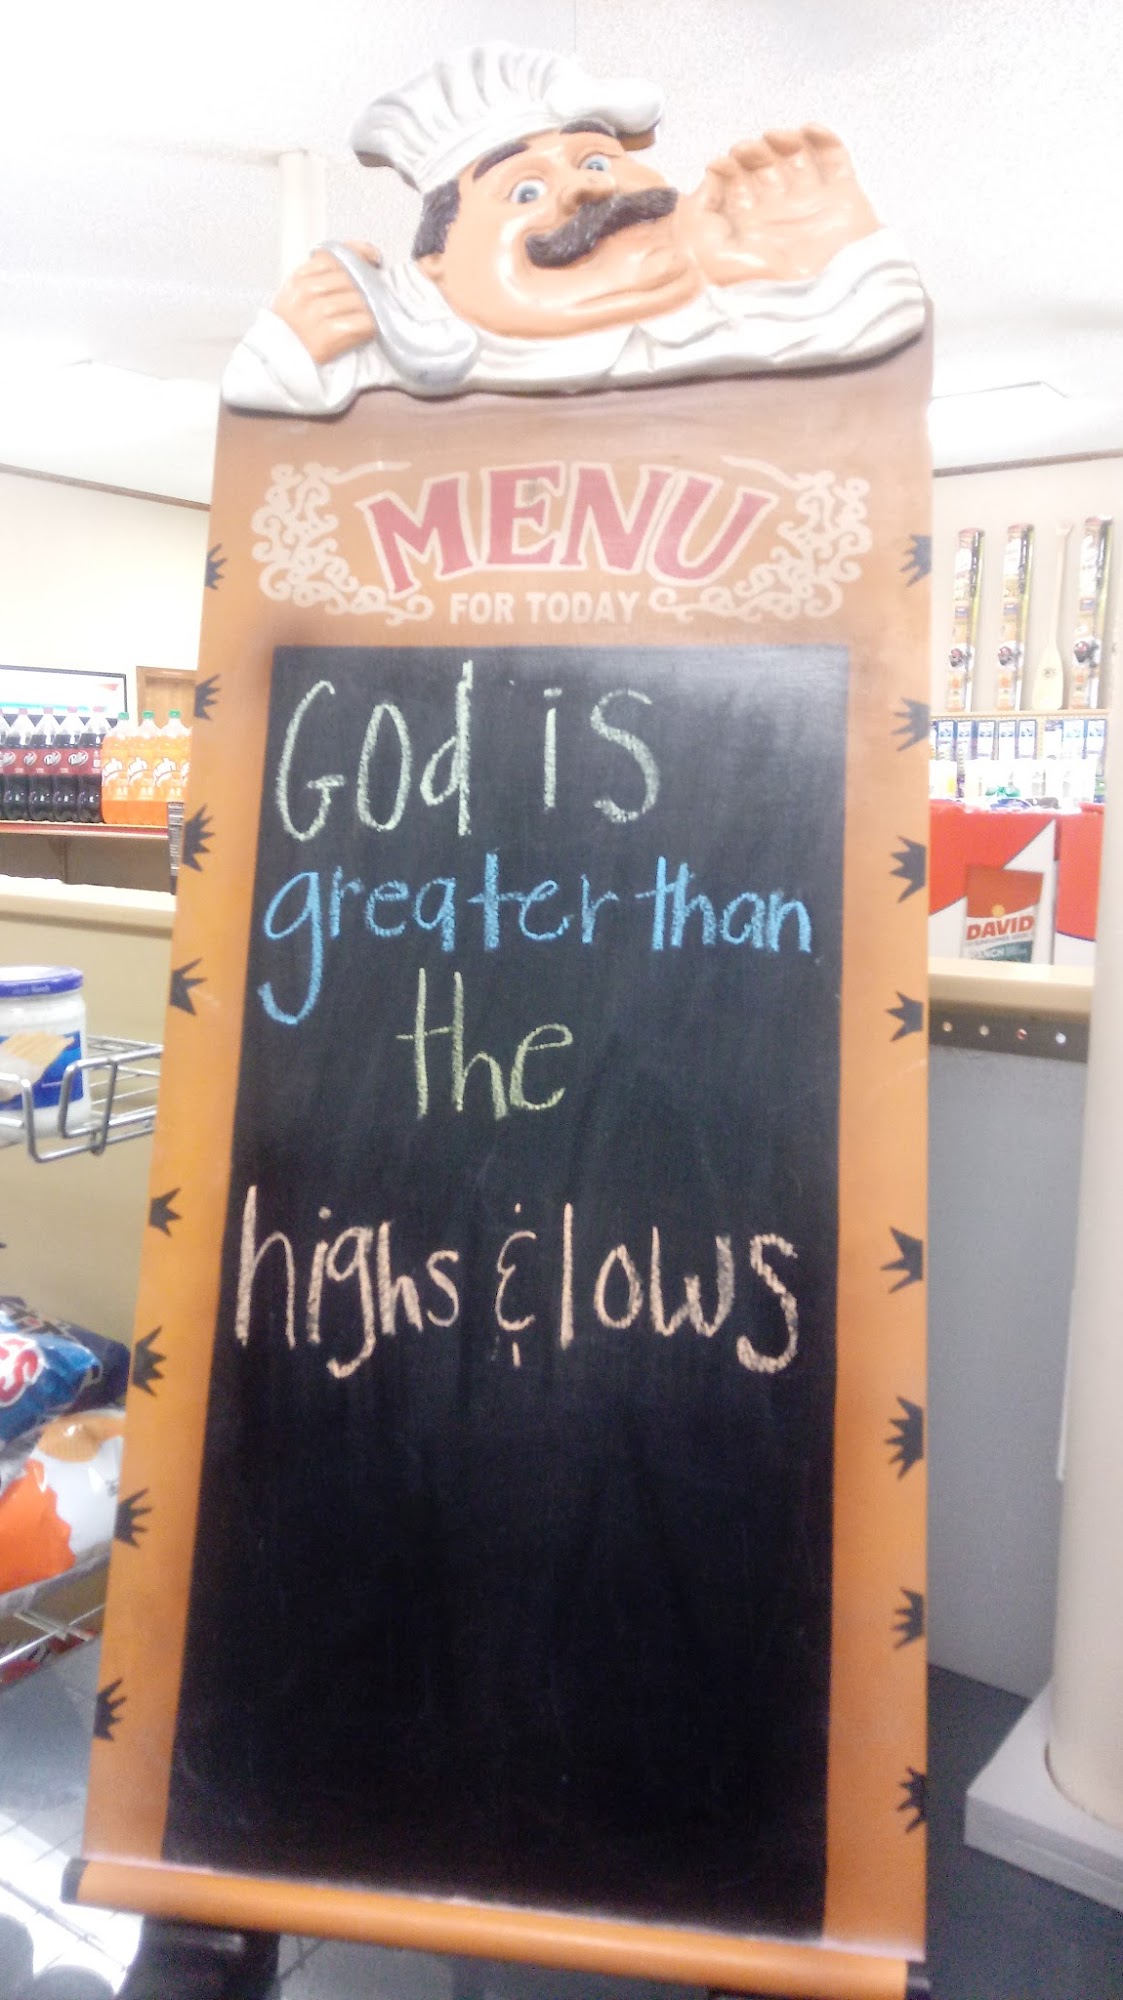 MENU
FOR TODAY
God is
greater than
the
highs & lows
DAVID